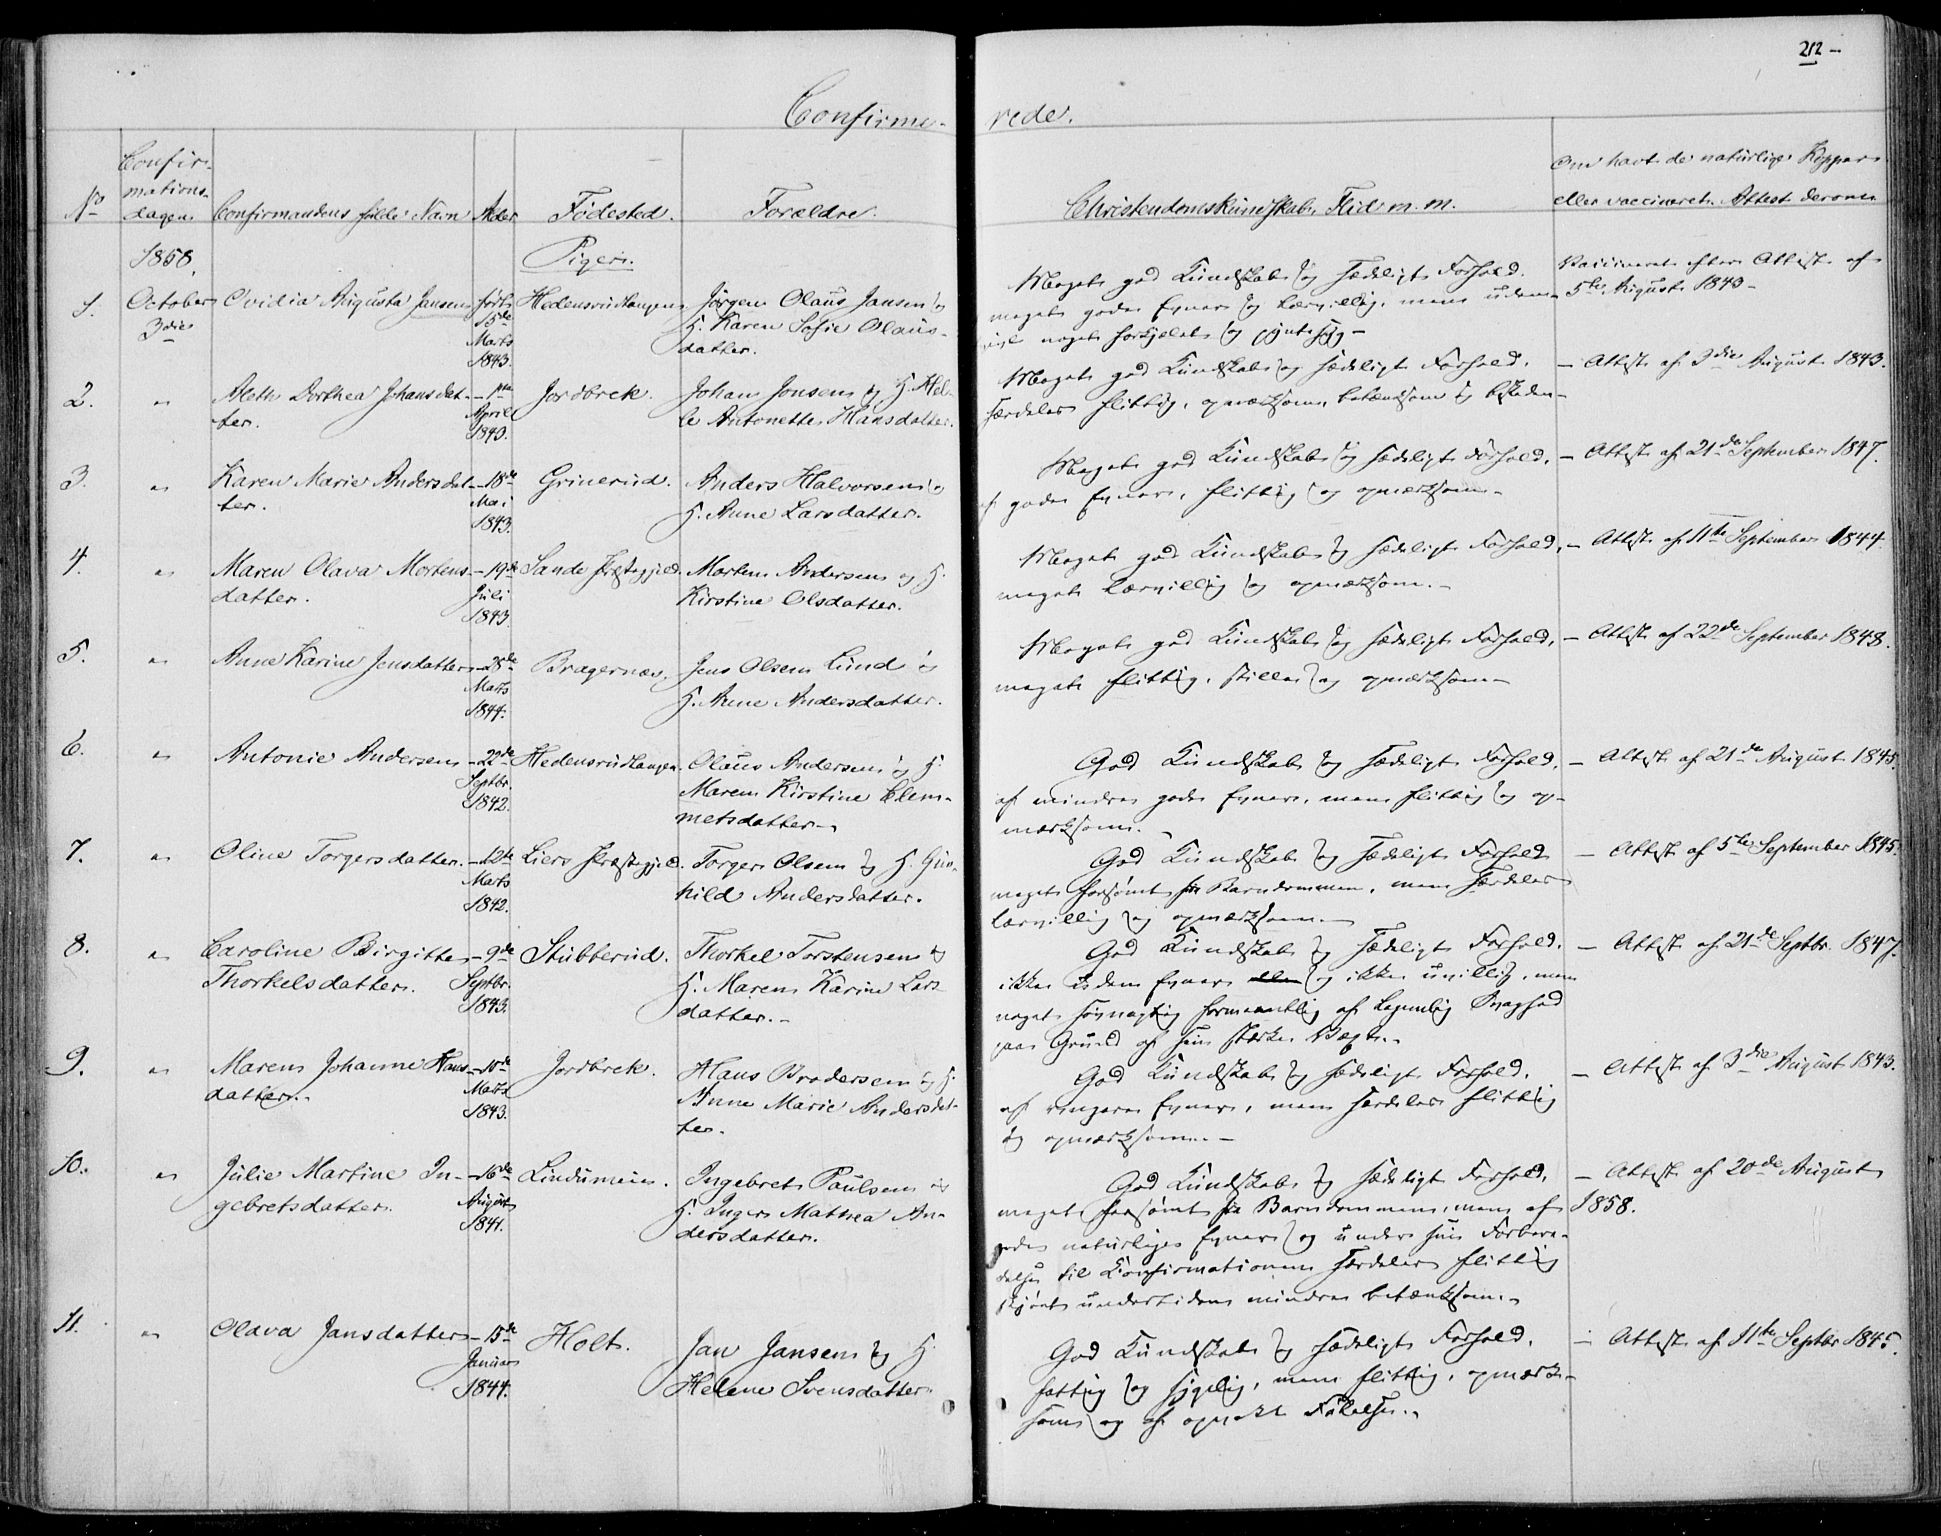 212 -
Confirme- rede.
No
Confir-
mations-
dagen
Confirmandens fulde Navn
Alder
Fødested.
Forældre.
Christendomskundskab, Flid m. m.
Om havt de naturlige Kopper
eller vaccineret. Attest derom
1858.
Piger.
1. October Ovidia Augusta Jensen født Hedensrudtangen Jørgen Olaus Jansen og
3die 15de H. Karen Sofie Olaus-
Marts datter.
1843.
Meget god Kundskab og sædeligt Forhold.
meget gode Evner og lærvillig, men uden-
noget forkjelet og
Vaccineret efter Attest af
5te August 1843 -
2. " Aleth Dorthea Johansdat- - 1ste Jordbrek. Johan Jonsen og H. Hel-
ter. April le Antonette Hansdatter.
1843.
Meget god Kundskab og sædeligt Forhold.
særdeles flittig, opmærksom, betænksom og beskeden -
- Attest af 3die August 1843.
3. " Karen Marie Andersdat- - 18de Grinerud. Anders Halvorsen og
ter. Mai H. Anne Larsdatter.
1843.
Meget god Kundskab og sædeligt Forhold.
af gode Evner, flittig og opmærksom -
- Attest af 21de September 1847.
4. " Maren Olava Mortens- - 19de Sande Præstegjeld. Morten Andersen og H.
datter. Juli Kirstine Olsdatter.
1843.
Meget god Kundskab og sædeligt Forhold,
meget lærvillig og opmærksom. -
- Attest af 11te September 1844.
5. " Anne Karine Jensdatter - 28de Bragernæs. Jens Olsen Lund og
Marts H. Anne Andersdatter.
1844.
Meget god Kundskab og sædeligt Forhold,
meget flittig, stille og opmærksom -
- Attest af 22de September 1848.
6. " Antonie Andersen - 22de Hedensrudtangen. Olaus Andersen og H.
Septbr. Maren Kirstine Clem-
1842. metsdatter. -
God Kundskab og sædeligt Forhold.
af mindre gode Evner, men flittig og op-
mærksom. -
- Attest af 21de August 1845.
7. " Oline Torgersdatter. - 12te Liers Præstegjeld. Torger Olsen og H. Gun-
Marts hild Andersdatter.
1842.
God Kundskab og sædeligt Forhold
meget forsømt fra Barndommen, men særdeles
lærvillig og opmærksom. -
- Attest af 5te September 1845.
8. " Caroline Birgitte - 9de Stubberud. Thorkel Torstensen og
Thorkelsdatter. Septbr. H. Maren Karine Lars
1843. datter. -
God Kundskab og sædeligt Forhold.
ikke uden Evner og ikke uvillig, men
noget søvnagtig formentlig af legemlig Svaghed
paa Grund af sin stærke Væxt. -
- Attest af 21de Septbr. 1847.
9. " Maren Johanne Hans- - 10de Jordbrek. Hans Brodersen og H.
datter. - Marts Anne Marie Andersdat-
1843. ter.
God Kundskab og sædeligt Forhold.
af ringere Evner, men særdeles flittig
og opmærksom. -
- Attest af 3die August 1843.
10. " Julie Martine In- - 16de Lindumeie. Ingebret Paulsen og
gebretsdatter. August H. Inger Mathea An-
1841. dersdatter.
God Kundskab og sædeligt Forhold.
meget forsømt fra Barndommen, men af
gode naturlige Evner og under sin Forbere-
delse til Konfirmationen særdeles flittig
skjønt undertiden mindre betænksom. -
- Attest af 20de August
1858.
11. " Olava Jansdatter - 15de Holt. Jan Jansen og H.
Januar Helene Svensdatter.
1844.
God Kundskab og sædeligt Forhold.
fattig og sygelig, men flittig, opmærk-
som og af opvakt Følelse. -
- Attest af 11te Septbr. 1845.